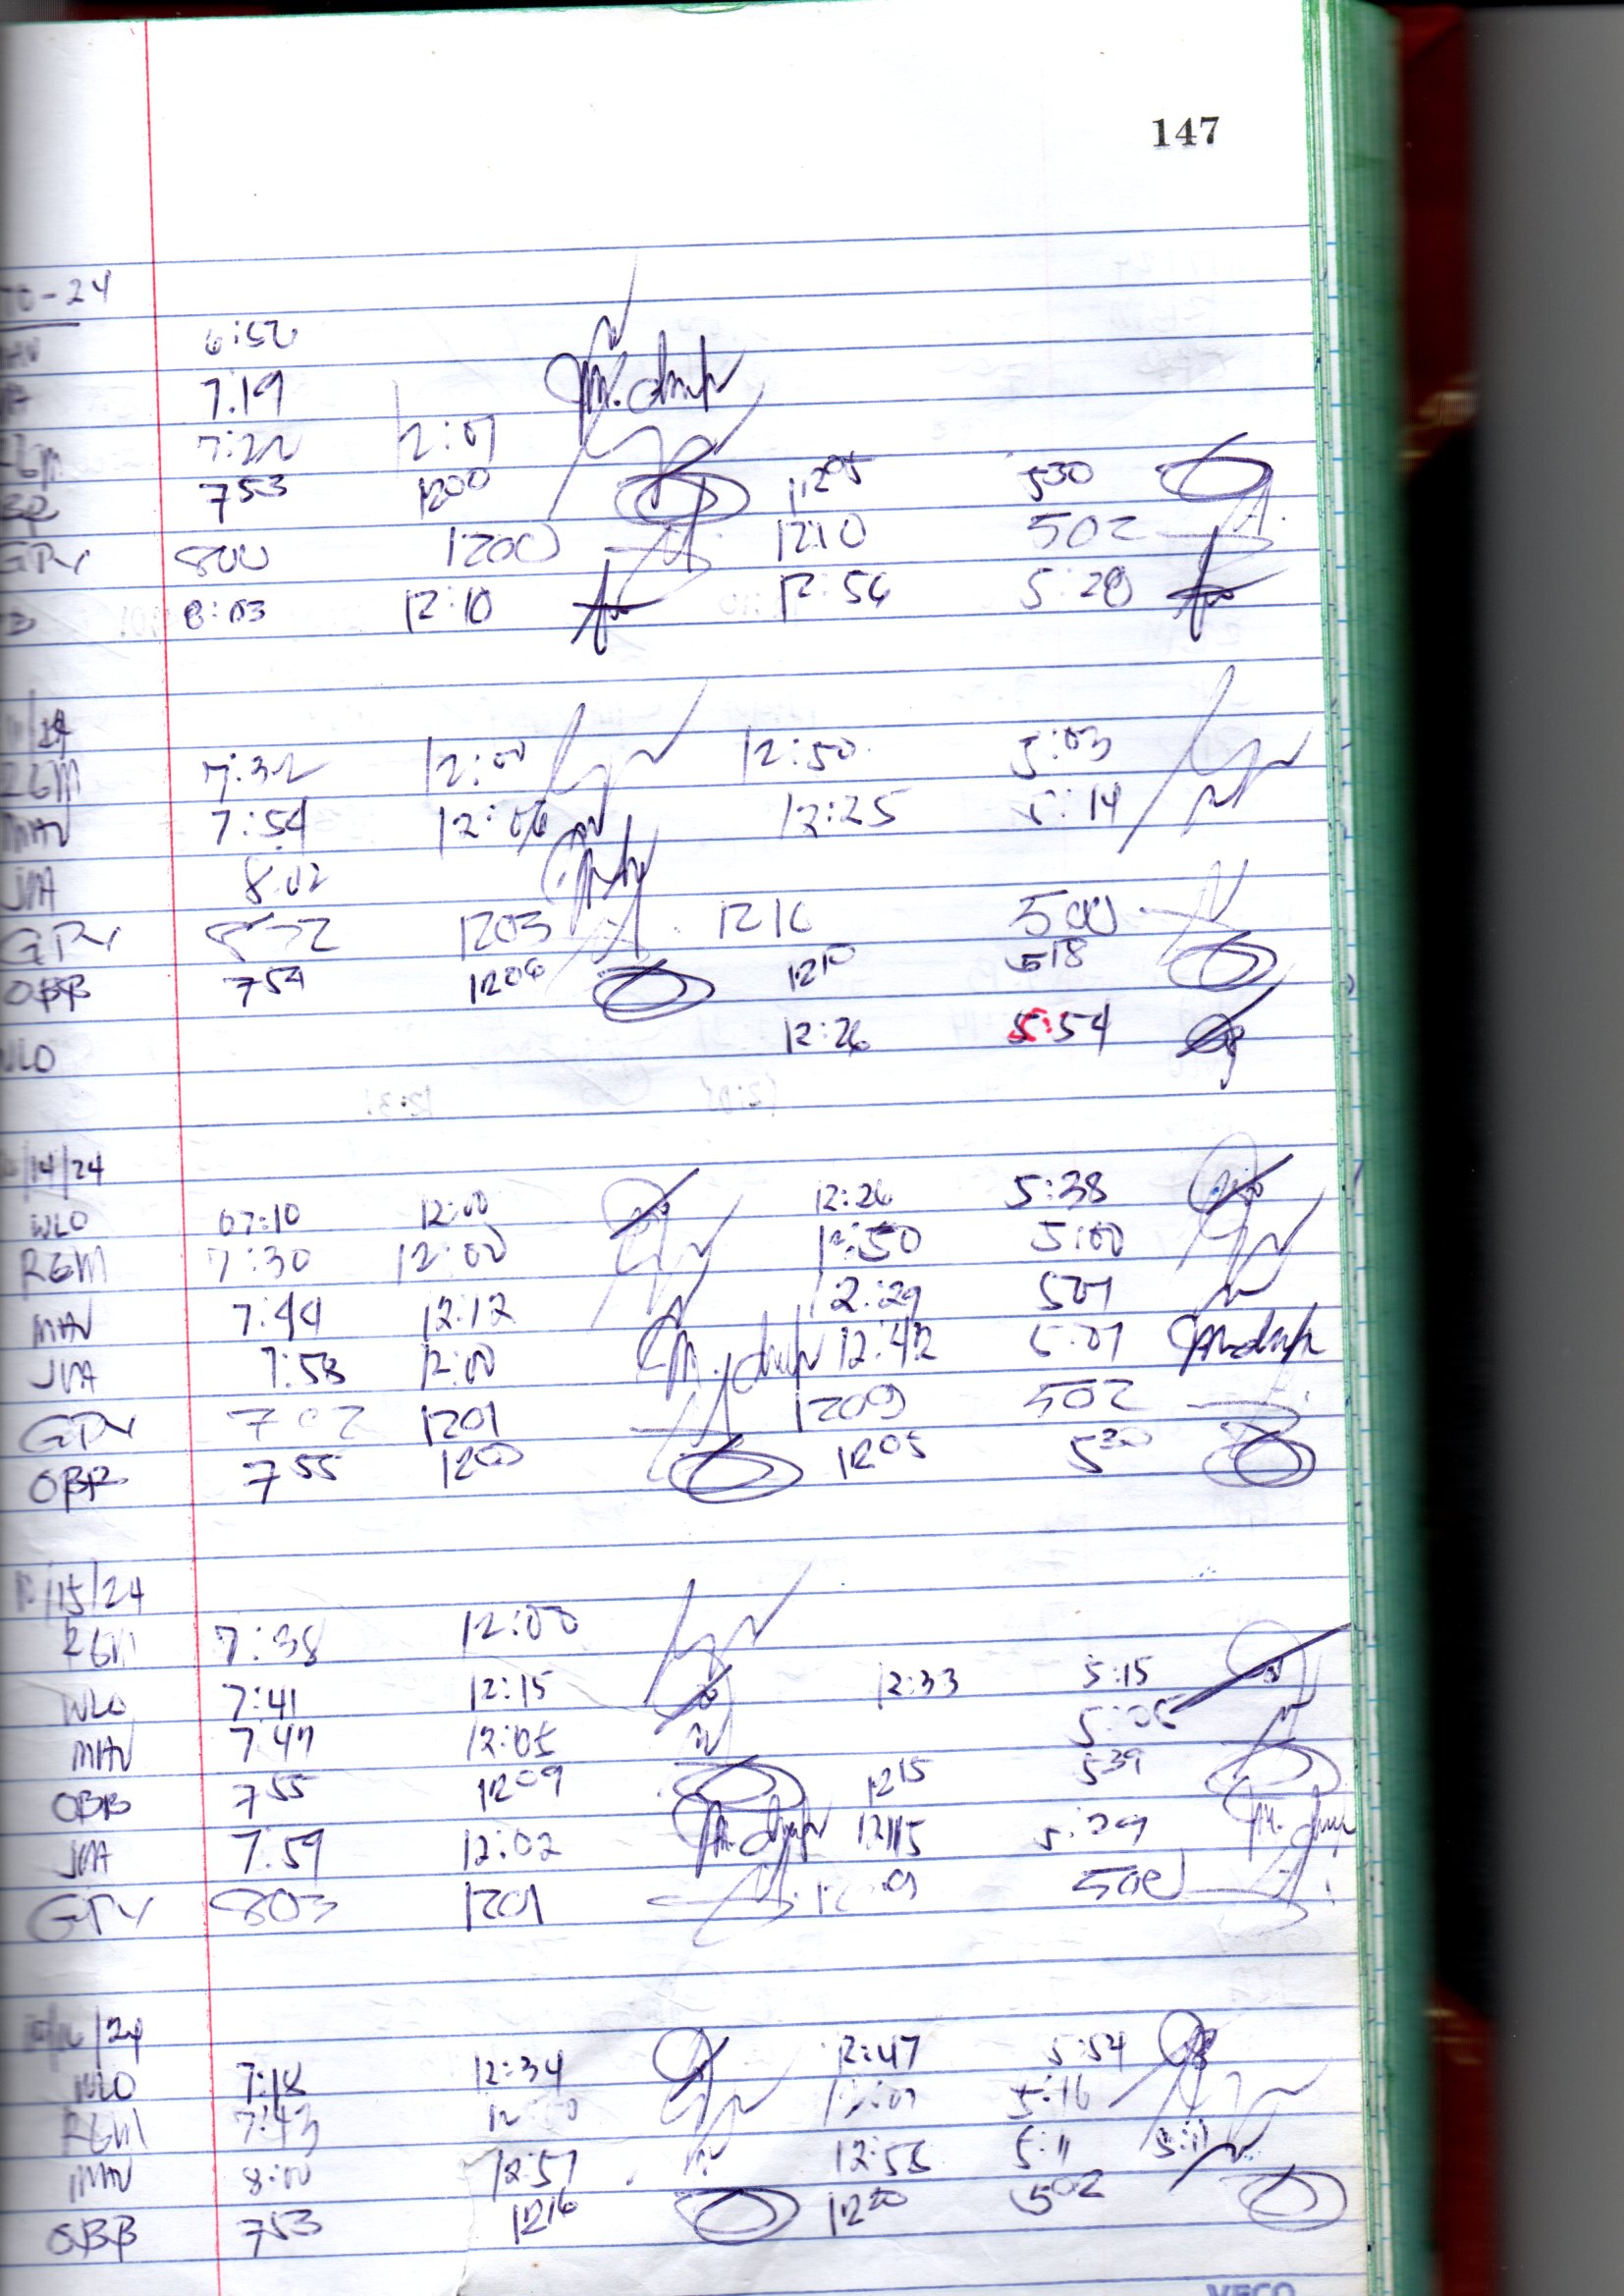 147
10-24
6:52
7.19
7:22 12:07
753 1200 1205 530
GPY 800 1200 1210 502
8:03 12:10 12:56 5:28
RGM 7:32 12:00 12:50 5:03
MAV 7:54 12:06 12:25 5:14
JVA 8:02
GPY 1203 1210 500
OBB 754 1206 1210 518
WLO 12:26 5:54
/14/24
WLO 07:10 12:00 12:26 5:38
RGM 7:30 12:00 12:50 5:00
MAV 7:44 12:12 12:29 507
JVA 7:58 12:00 12:42 5:07
GPY 702 1201 1209 502
OBB 755 1200 1205 530
10/15/24
RGM 7:38 12:00
WLO 7:41 12:15 12:33 5:15
MAV 747 12:05 5:05
OBB 755 1209 1215 539
JVA 7.59 12:02 12:15 5:29
GPY 803 1201 500
10/16/24
WLO 7:18 12:34 12:47 5:54
RGM 7:43 5:16
MAV 8:00 12:57 12:55 5:11 5:11
OBB 753 1216 1220 502
VECO